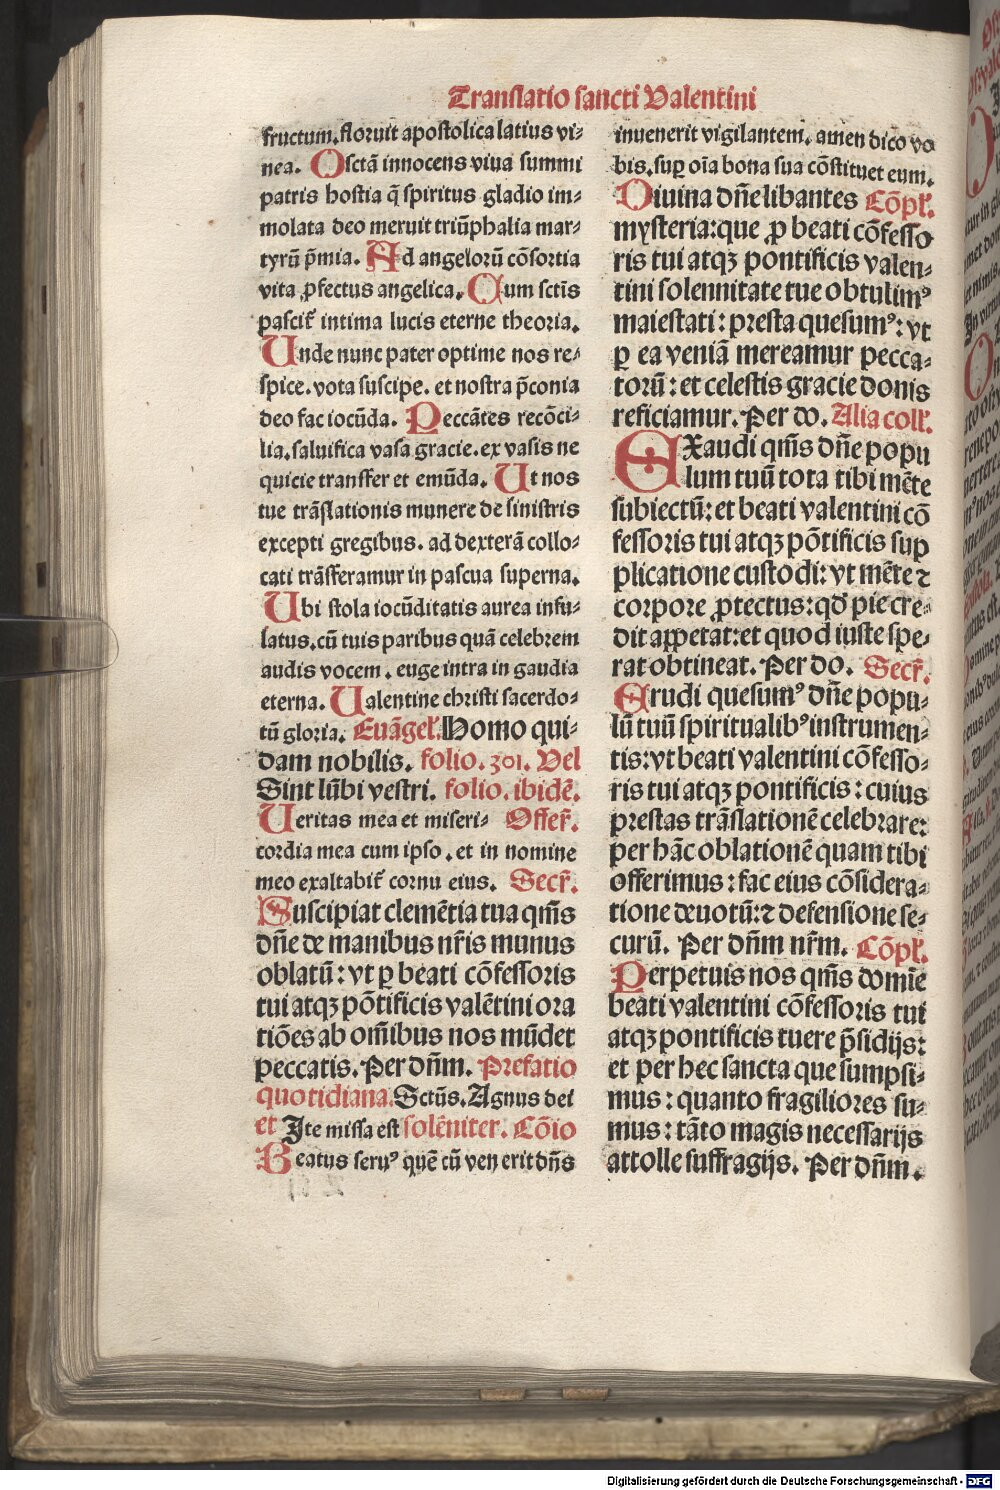 Translatio sancti Valentini
fructum. floruit apostolica latius vi⸗
nea. O sctã innocens viua summi
patris hostia q̃ spiritus gladio im⸗
molata deo meruit triũphalia mar⸗
tyrũ p̃mia. Ad angelorũ cõsortia
vita ꝓfectus angelica. Cum sctĩs
pascit᷑ intima lucis eterne theoria.
Unde nunc pater optime nos re⸗
spice. vota suscipe. et nostra p̃conia
deo fac iocũda. Peccãtes recõci⸗
lia. saluifica vasa gracie. ex vasis ne
quicie transfer et emũda. Ut nos
tue trãslationis munere de sinistris
excepti gregibus. ad dexterã collo⸗
cati trãsferamur in pascua superna.
Ubi stola iocũditatis aurea infu⸗
latus. cũ tuis paribus quã celebrem
audis vocem. euge intra in gaudia
eterna. Ualentine christi sacerdo⸗
tũ gloria. Euãgel᷑. Homo qui⸗
dam nobilis. folio. 301. Vel
Sint lũbi vestri. folio. ibidẽ.
Ueritas mea et miseri⸗ Offer᷑.
cordia mea cum ipso. et in nomine
meo exaltabit᷑ cornu eius. Secr᷑.
Suscipiat clemẽtia tua qm̃s
dñe de manibus nr̃is munus
oblatũ: vt ꝑ beati cõfessoris
tui atqꝫ põtificis valẽtini ora
tiões ab om̃ibus nos mũdet
peccatis. Per dñm. Prefatio
quotidiana. Sctũs. Agnus dei
et Ite missa est solẽniter. Cõio
Beatus seruꝰ quẽ cũ venerit dñs
inuenerit vigilantem. amen dico vo
bis. suꝑ oĩa bona sua cõstituet eum.
Diuina dñe libantes Cõpl᷑.
mysteria: que ꝓ beati cõfesso
ris tui atqꝫ pontificis valen⸗
tini solennitate tue obtulimꝰ
maiestati: presta quesumꝰ: vt
ꝑ ea veniã mereamur pecca⸗
torũ: et celestis gracie donis
reficiamur. Per do. Alia coll᷑.
Exaudi qm̃s dñe popu
lum tuũ tota tibi mẽte
subiectũ: et beati valentini cõ
fessoris tui atqꝫ põtificis sup
plicatione custodi: vt mẽte ⁊
corpore ꝓtectus: qđ pie cre⸗
dit apꝑetat: et quod iuste spe⸗
rat obtineat. Per do. Secr᷑.
Erudi quesumꝰ dñe popu⸗
lũ tuũ spiritualibꝰ instrumen⸗
tis: vt beati valentini cõfesso⸗
ris tui atqꝫ pontificis: cuius
prestas trãslationẽ celebrare:
per hãc oblationẽ quam tibi
offerimus: fac eius cõsidera⸗
tione deuotũ: ⁊ defensione se⸗
curũ. Per dñm nr̃m. Cõpl᷑.
Perpetuis nos qm̃s domĩe
beati valentini cõfessoris tui
atqꝫ pontificis tuere p̃sidijs:
et per hec sancta que sumpsi⸗
mus: quanto fragiliores su⸗
mus: tãto magis necessarijs
attolle suffragijs. Per dñm.
Digitalisierung gefördert durch die Deutsche Forschungsgemeinschaft - DFG